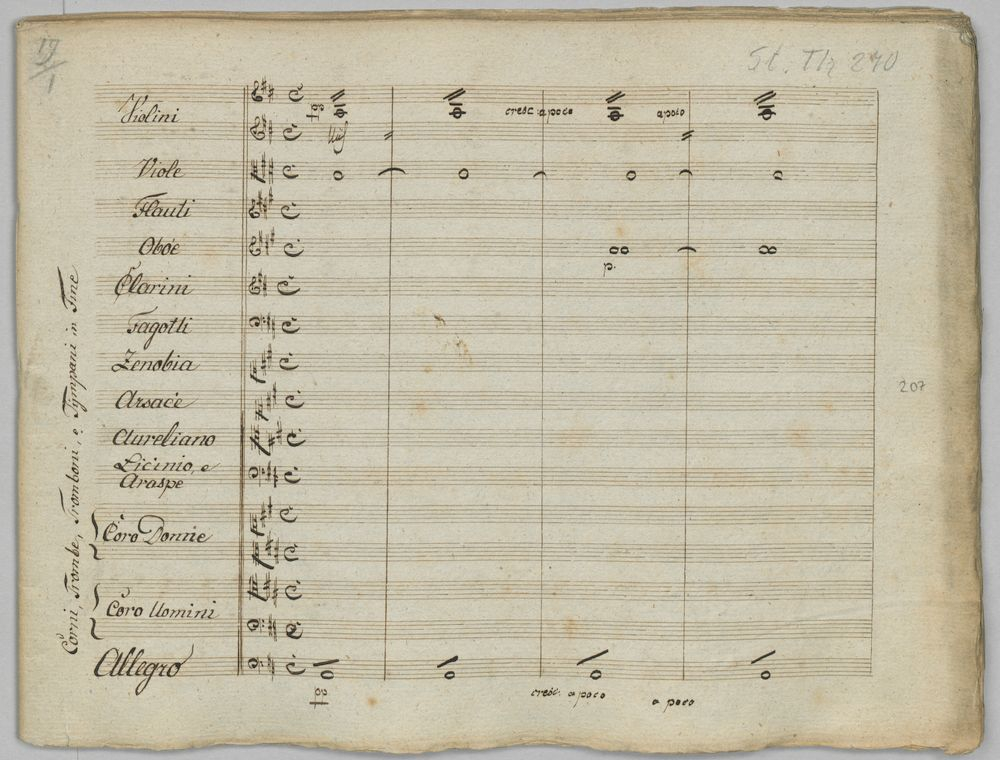 19/1
St. Th 270
Violini
cresc. a poco a poco
Viole
Flauti
Oboe
p.
Clarini
Fagotti
Zenobia
Arsace
207
Aureliano
Licinio, e
Araspe
Coro Donne
Coro Uomini
Allegro
cresc. a poco a poco
Corni, Trombe, Tromboni, e Tympani in Fine